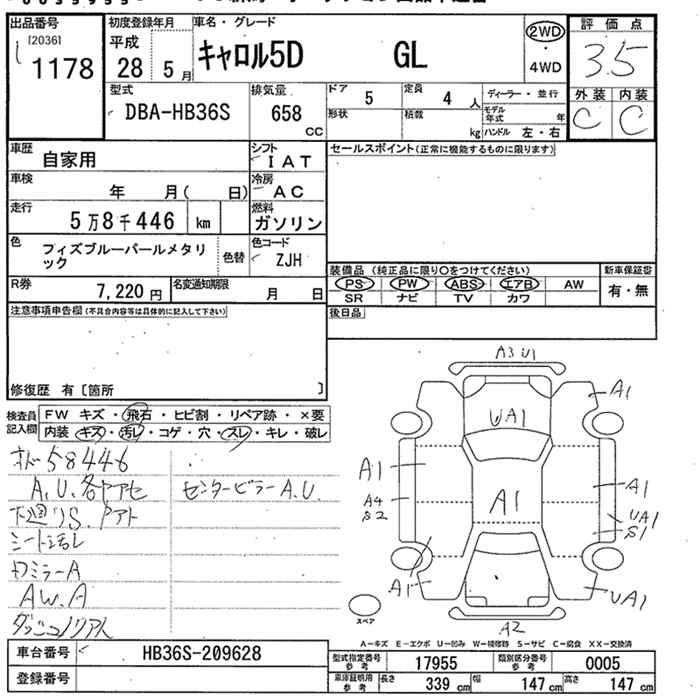 出品番号
[2036]
1178
初度登録年月
平成
28 5月
車名・グレード
キャロル5D GL
2WD
・
4WD
評価点
3.5
外装 内装
C C
型式
DBA-HB36S
排気量
658
CC
ドア
5
定員
4 人
形状
積載
kg
ディーラー・並行
モデル年式 年
ハンドル 左・右
車歴
自家用
シフト
IAT
車検
年 月( 日)
冷房
AC
走行
5万8千446 km
燃料
ガソリン
色
フィズブルーパールメタリック
色替
色コード
ZJH
R券
7,220円
名変通知期限
月 日
セールスポイント(正常に機能するものに限ります)
装備品 (純正品に限り○をつけてください)
PS PW ABS エアB AW
SR ナビ TV カワ
新車保証書
有・無
後日品
注意事項申告欄(不具合内容等は具体的に記入して下さい)
修復歴 有〔箇所 〕
検査員記入欄
FW キズ・飛石・ヒビ割・リペア跡・×要
内装 キズ・汚レ・コゲ・穴・スレ・キレ・破レ
58446
A.U.各ヤアセ
センターピラーA.U.
下廻りS.
シート汚レ
ミラーA
AW.A
A3 U1
A1
UA1
A1
A4
S2
A1
A1
UA1
S1
A1
UA1
A2
スペア
A-キズ E-エクボ U-凹み W-補修跡 S-サビ C-腐食 XX-交換済
車台番号
HB36S-209628
登録番号
型式指定番号参考
17955
類別区分番号参考
0005
車庫証明用参考
長さ 339 cm 幅 147 cm 高さ 147 cm